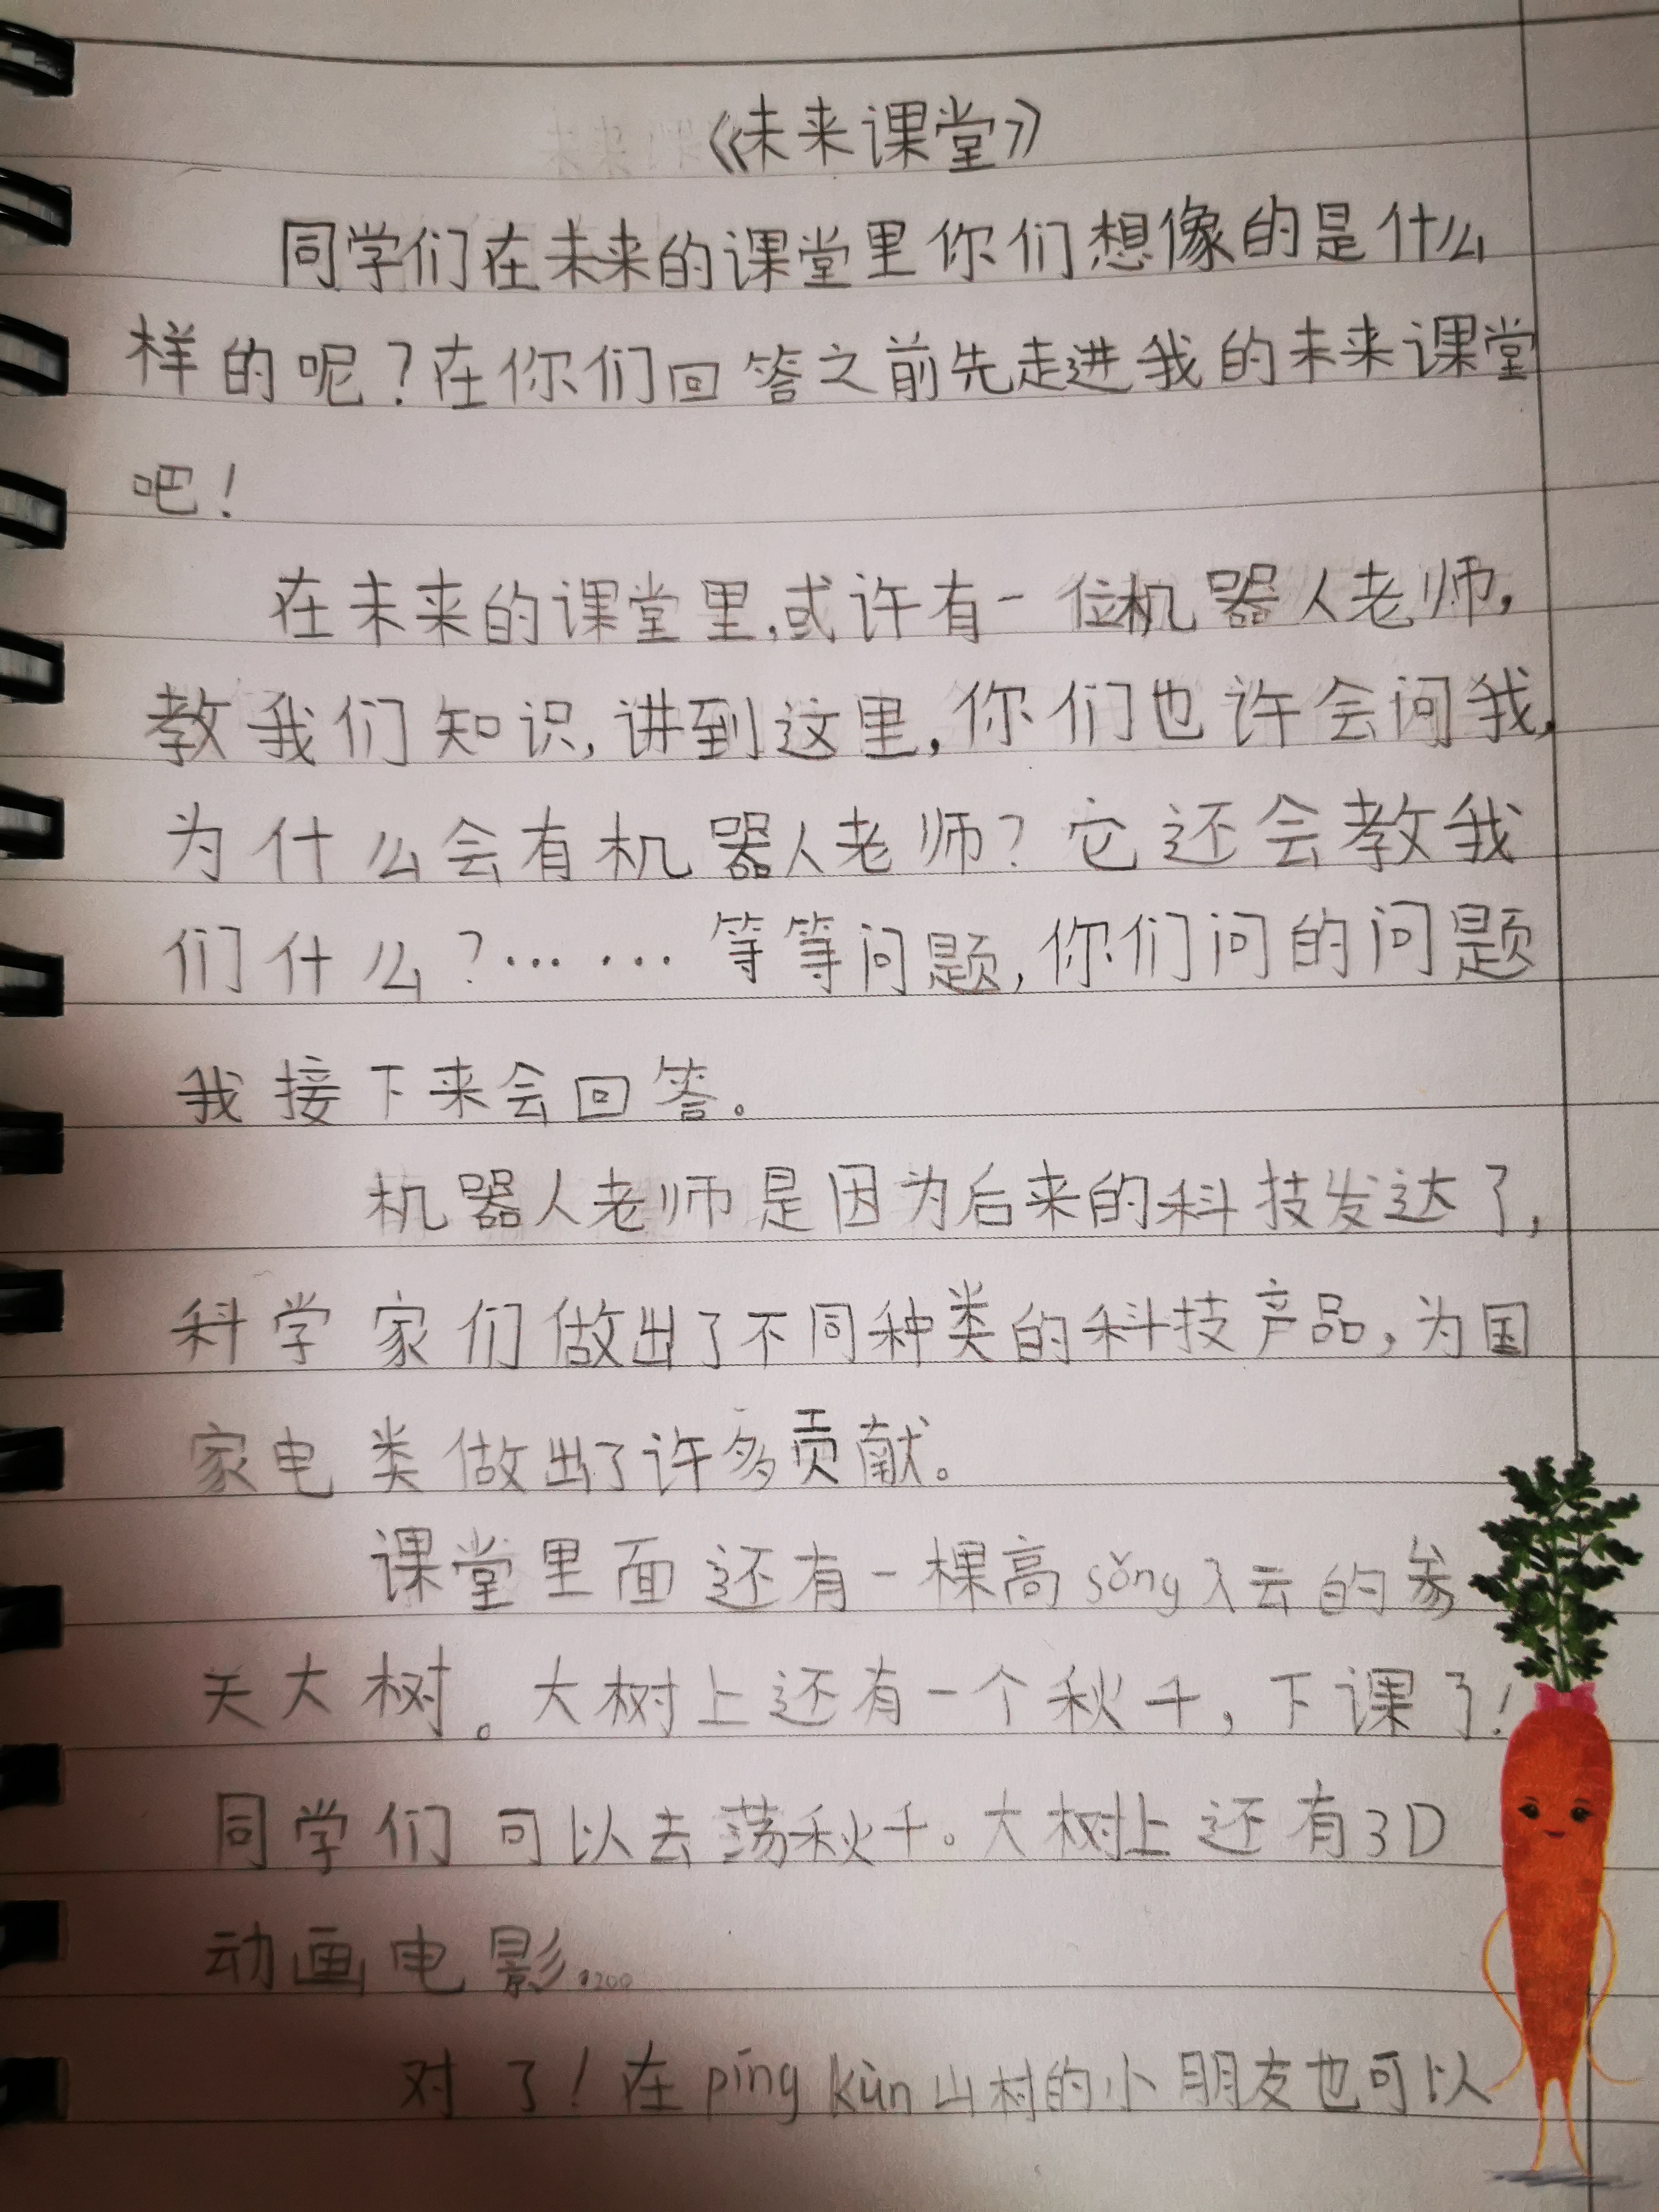 《未来课堂》
同学们在未来的课堂里你们想像的是什么
样的呢?在你们回答之前先走进我的未来课堂
吧!
在未来的课堂里,或许有一位机器人老师,
教我们知识,讲到这里,你们也许会问我,
为什么会有机器人老师?它还会教我
们什么?……等等问题,你们问的问题
我接下来会回答。
机器人老师是因为后来的科技发达了,
科学家们做出了不同种类的科技产品,为国
家电类做出了许多贡献。
课堂里面还有一棵高sǒng入云的参
天大树。大树上还有一个秋千,下课了!
同学们可以去荡秋千。大树上还有3D
动画电影.
对了!在píng kùn山村的小朋友也可以